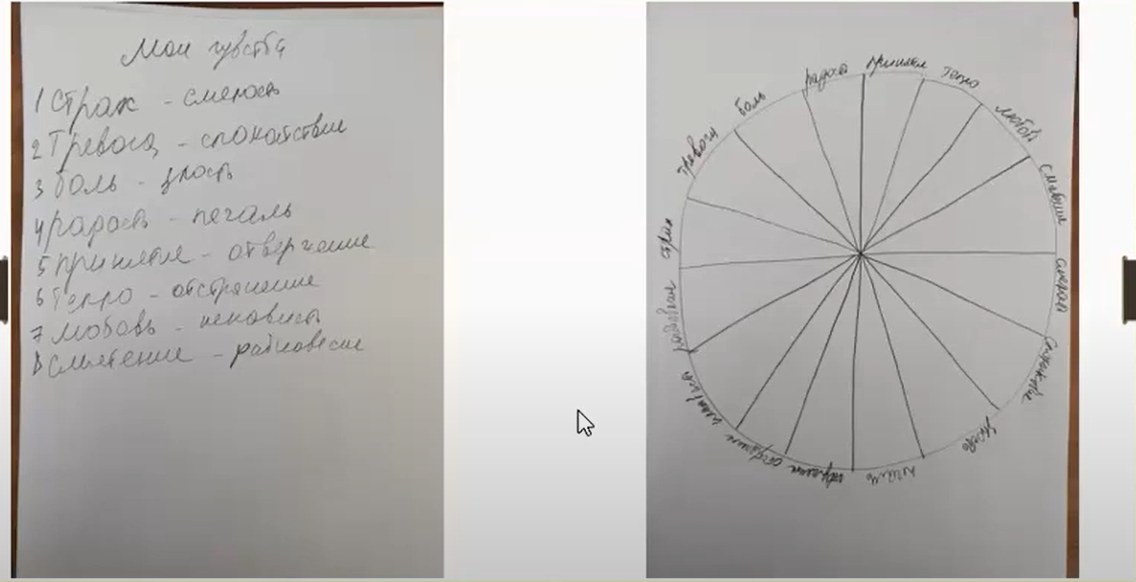 Мои чувства
1 Страх - смелость
2 Тревога - спокойствие
3 боль - злость
4 радость - печаль
5 принятие - отвержение
6 Тепло - отстранение
7 Любовь - ненависть
8 Смятение - равновесие
радость
принятие
тепло
любовь
смятение
боль
тревога
страх
злость
печаль